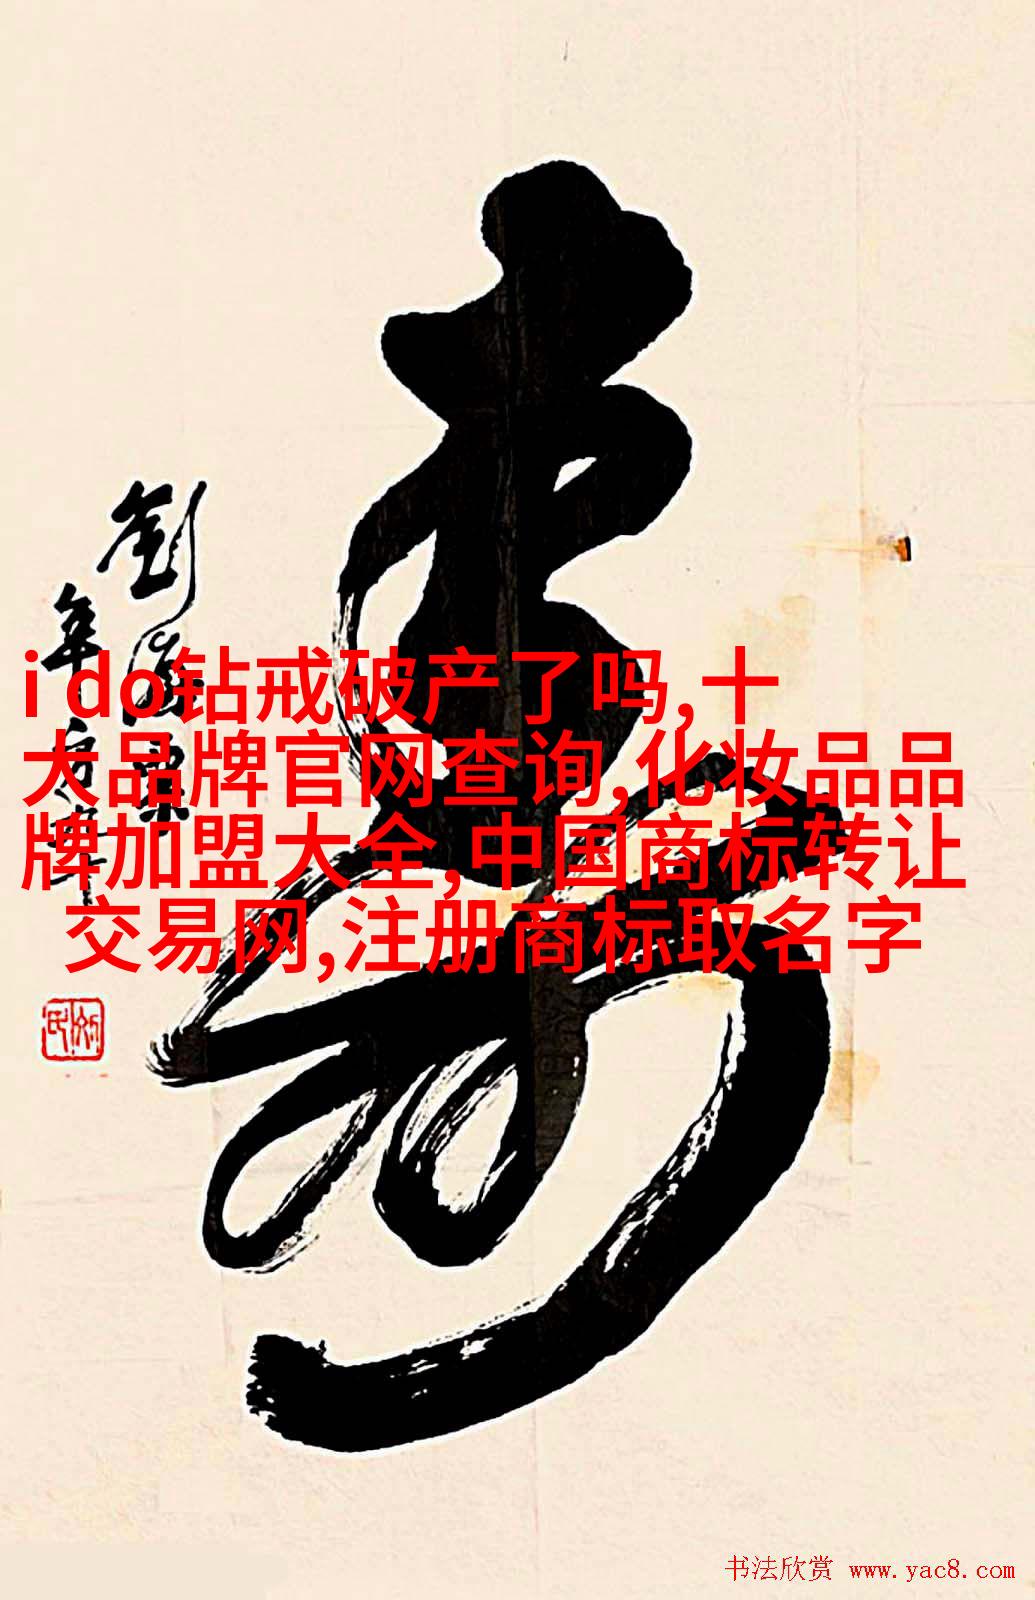 i do钻戒破产了吗,十
大品牌官网查询,化妆品品
牌加盟大全,中国商标转让
交易网,注册商标取名字
寿
刘海粟
年方八十
书法欣赏 www.yac8.com